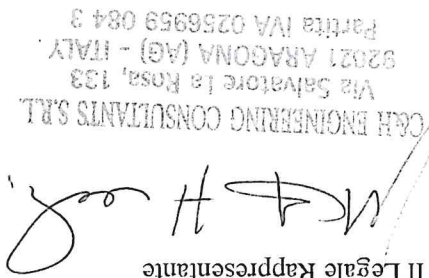 Il Legale Rappresentante
C&H ENGINEERING CONSULTANTS S.R.L.
Via Salvatore La Rosa, 133
92021 ARAGONA (AG) - ITALY
Partita IVA 0256959 084 3